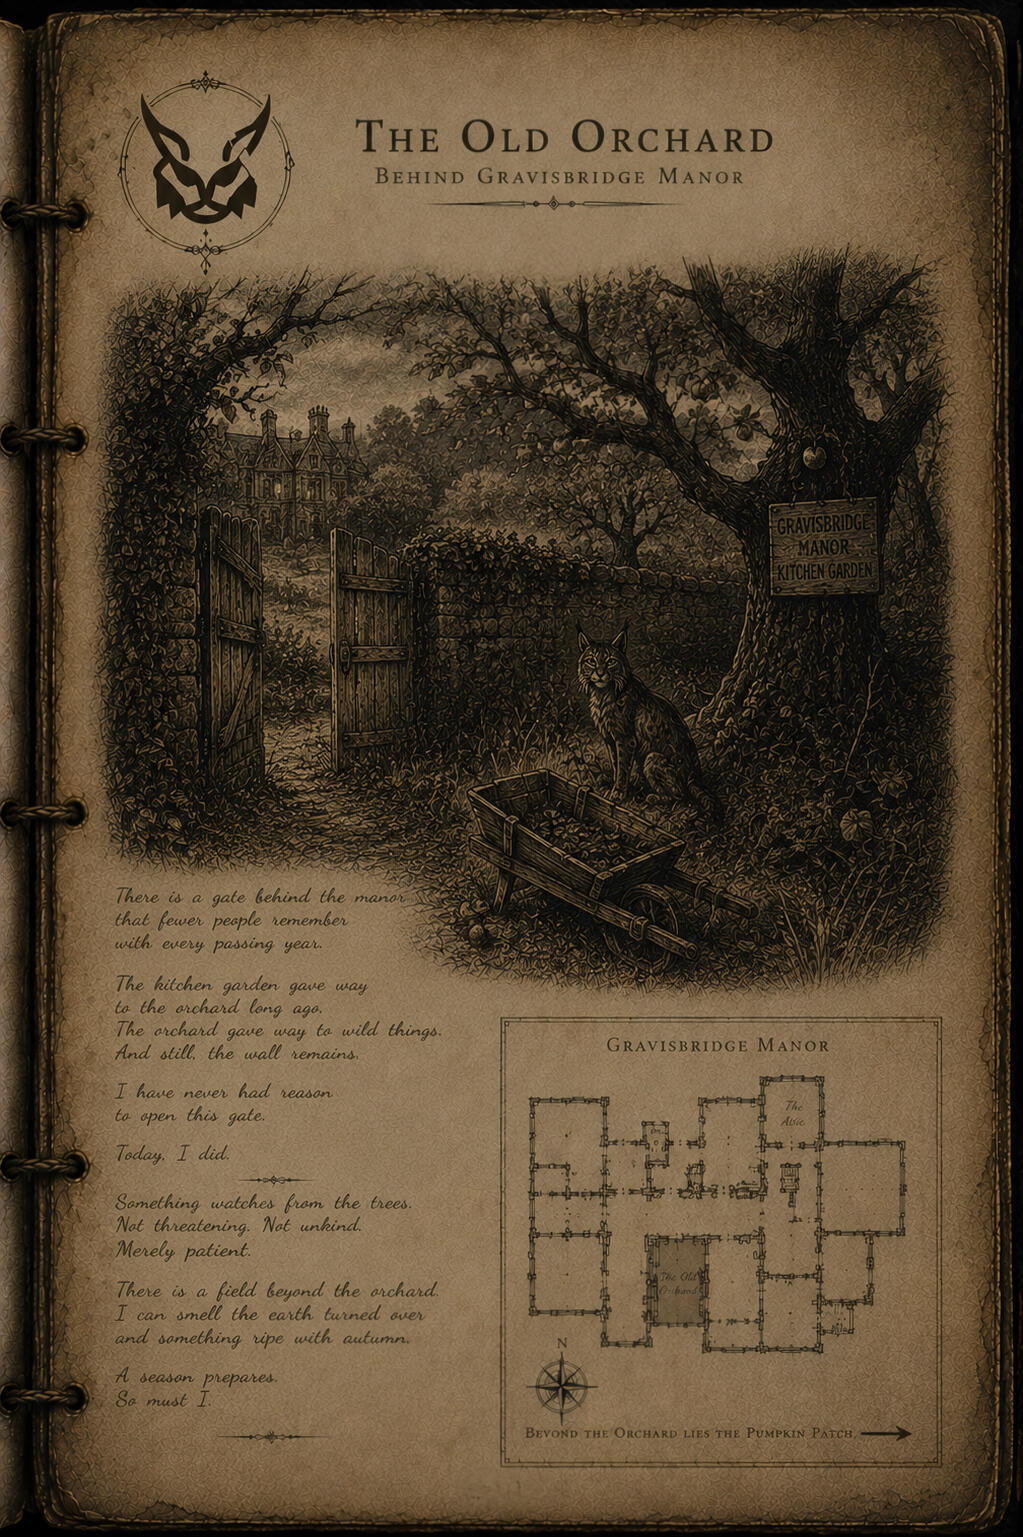 The Old Orchard
Behind Gravisbridge Manor
GRAVISBRIDGE
MANOR
KITCHEN GARDEN
There is a gate behind the manor
that fewer people remember
with every passing year.
The kitchen garden gave way
to the orchard long ago.
The orchard gave way to wild things.
And still, the wall remains.
I have never had reason
to open this gate.
Today, I did.
Something watches from the trees.
Not threatening. Not unkind.
Merely patient.
There is a field beyond the orchard.
I can smell the earth turned over
and something ripe with autumn.
A season prepares.
So must I.
Gravisbridge Manor
The
The Old
Orchard
N
Beyond the Orchard lies the Pumpkin Patch